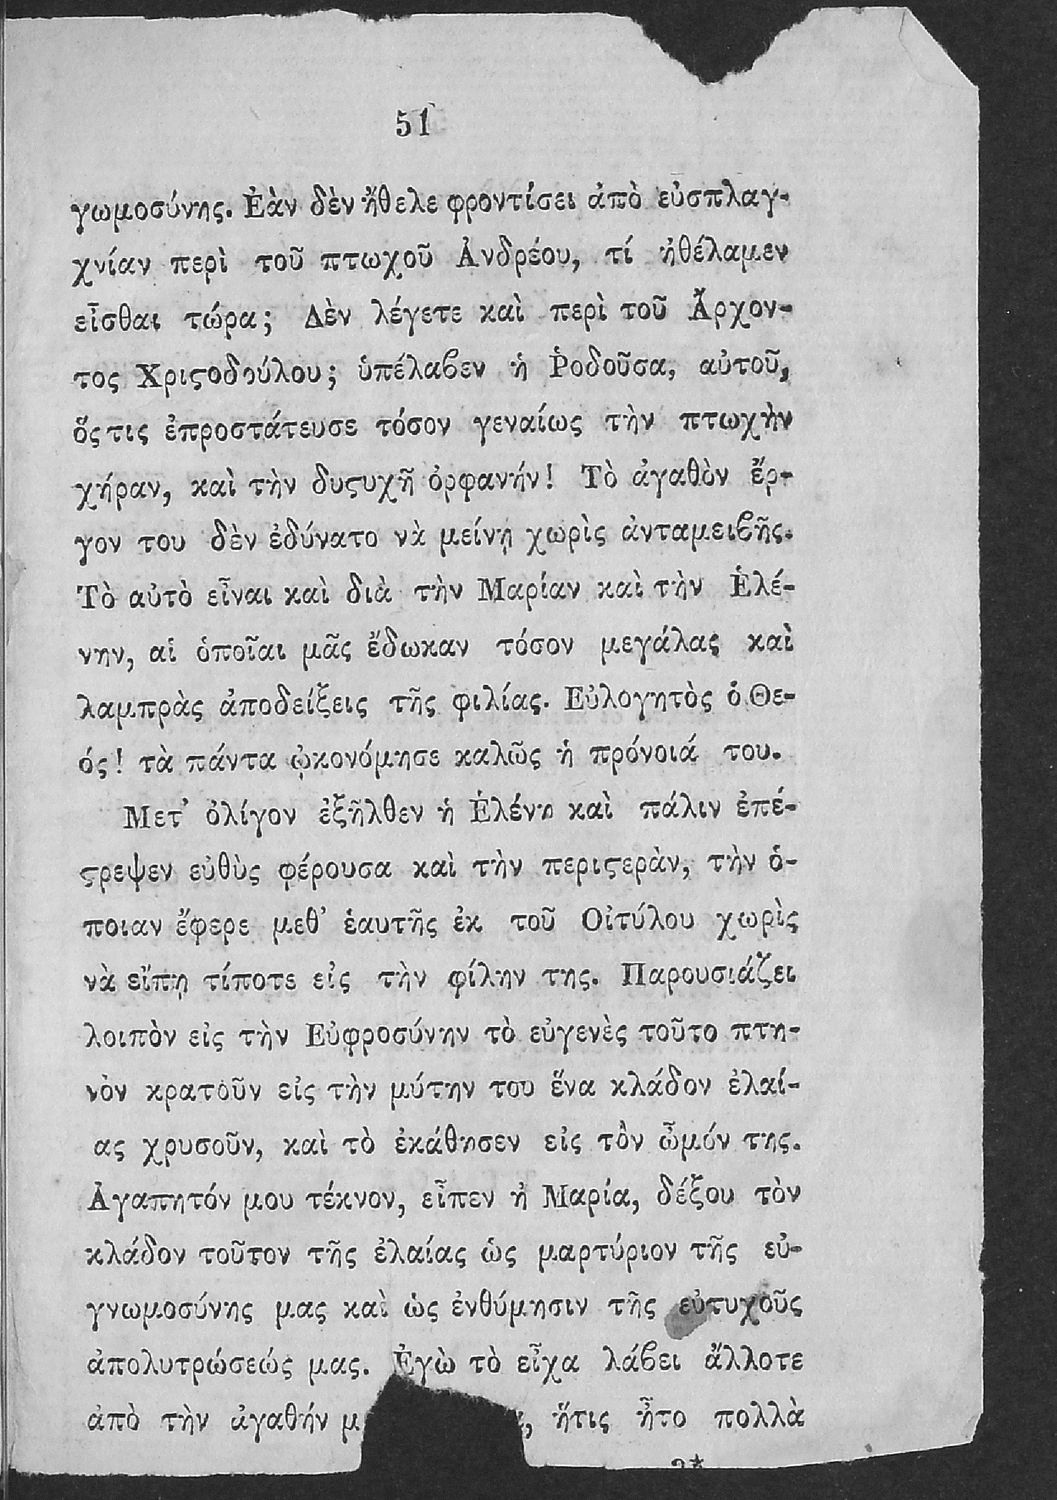 51
γωμοσύνης. Ἐὰν δὲν ἤθελε φροντίσει ἀπὸ εὐσπλαγ-
χνίαν περὶ τοῦ πτωχοῦ Ἀνδρέου, τί ἠθέλαμεν
εἶσθαι τώρα; Δὲν λέγετε καὶ περὶ τοῦ Ἄρχον-
τος Χριϛοδούλου; ὑπέλαϐεν ἡ Ῥοδοῦσα, αὐτοῦ,
ὅς τις ἐπροστάτευσε τόσον γεναίως τὴν πτωχὴν
χήραν, καὶ τὴν δυϛυχῆ ὀρφανήν! Τὸ ἀγαθὸν ἔρ-
γον του δὲν ἐδύνατο νὰ μείνῃ χωρὶς ἀνταμειϐῆς.
Τὸ αὐτὸ εἶναι καὶ διὰ τὴν Μαρίαν καὶ τὴν Ἑλέ-
νην, αἱ ὁποῖαι μᾶς ἔδωκαν τόσον μεγάλας καὶ
λαμπρὰς ἀποδείξεις τῆς φιλίας. Εὐλογητὸς ὁ Θε-
ός! τὰ πάντα ᾠκονόμησε καλῶς ἡ πρόνοιά του.
Μετ’ ὀλίγον ἐξῆλθεν ἡ Ἑλένη καὶ πάλιν ἐπέ-
ϛρεψεν εὐθὺς φέρουσα καὶ τὴν περιϛερὰν, τὴν ὁ-
ποιαν ἔφερε μεθ’ ἑαυτῆς ἐκ τοῦ Οἰτύλου χωρὶς
νὰ εἴπῃ τίποτε εἰς τὴν φίλην της. Παρουσιάζει
λοιπὸν εἰς τὴν Εὐφροσύνην τὸ εὐγενὲς τοῦτο πτη-
νὸν κρατοῦν εἰς τὴν μύτην του ἕνα κλάδον ἐλαί-
ας χρυσοῦν, καὶ τὸ ἐκάθησεν εἰς τὸν ὦμόν της.
Ἀγαπητόν μου τέκνον, εἶπεν ἡ Μαρία, δέξου τὸν
κλάδον τοῦτον τῆς ἐλαίας ὡς μαρτύριον τῆς εὐ-
γνωμοσύνης μας καὶ ὡς ἐνθύμησιν τῆς εὐτυχοῦς
ἀπολυτρώσεώς μας. Ἐγὼ τὸ εἶχα λάϐει ἄλλοτε
ἀπὸ τὴν ἀγαθήν μ , ἥτις ἦτο πολλὰ